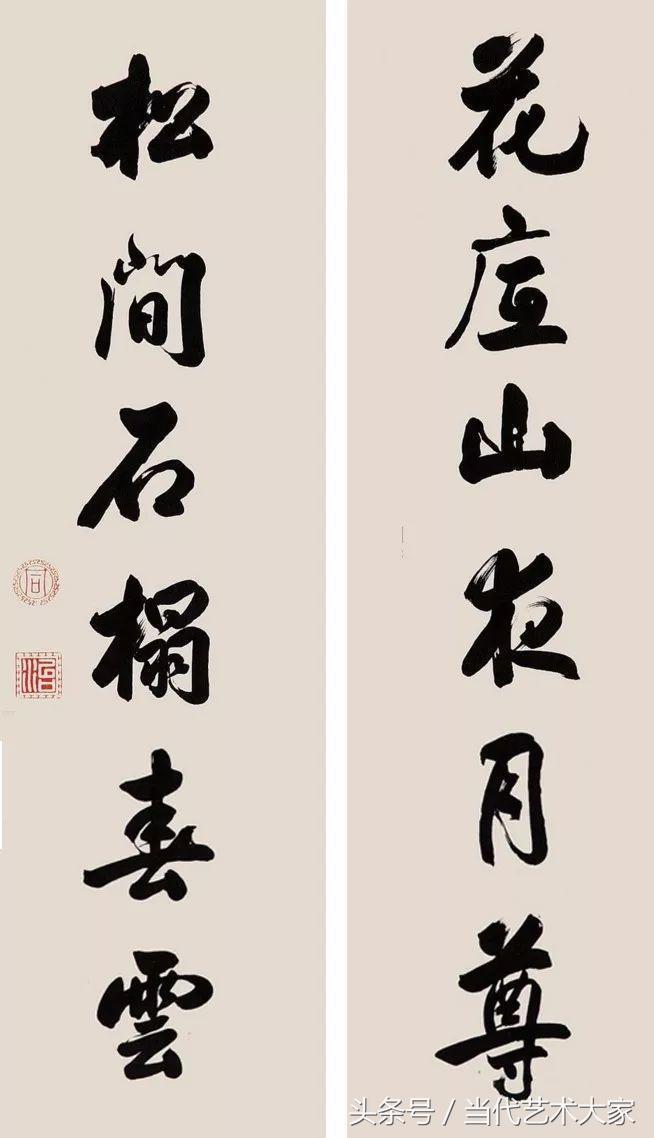 花山夜月尊
松間石榻春雲
同
治
头条号 / 当代艺术大家